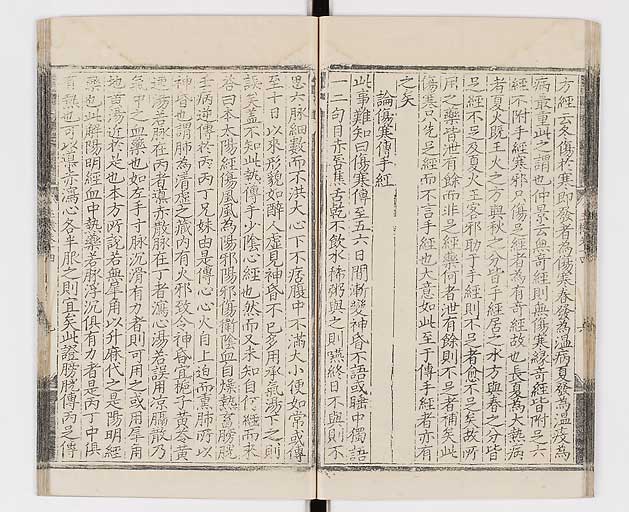 方經云冬傷於寒即發者為傷寒春發為溫病夏發為溫疫為
病最重此之謂也仲景云無奇經則無傷寒緣奇經皆附足六
經不附手經寒邪只傷足經者為有奇經故也長夏為大熱病
者夏火既王火之方與秋之分皆手經居之水方與春之分皆
足經不足及夏火王客邪助于手經則不足者愈不足矣故所
用之藥皆泄有餘而非足經藥何者泄有餘則不足者補矣此
傷寒只先足經而不言手經也大意如此至于傳手經者亦有
之矣
論傷寒傳手經
此事難知曰傷寒傳至五六日間漸變神昏不語或睡中獨語
一二句目赤唇焦舌乾不飲水稀粥與之則嚥終日不與則不
思六脉細數而不洪大心下不痞腹中不滿大小便如常或傳
至十日以來形貌如醉人虛見神昏不已多用承氣湯下之則
誤矣蓋不知此熱傳手少陰心經也然而又未知自何經而來
答曰本太陽經傷風風為陽邪陽邪傷衛陰血自燥熱畜膀胱
壬病逆傳於丙丙丁兄妹由是傳心心火自上迫而熏肺所以
神昏也謂肺為清虛之藏內有火邪致令神昏宜梔子黃芩黃
連湯若脉在丙者導赤散脉在丁者瀉心湯若誤用涼膈散乃
氣中之血藥也如左手寸脉沉滑有力者則可用之或用犀角
地黃湯近於是也本方所說若無犀角以升麻代之是陽明經
藥也此解陽明經血中熱藥若脉浮沉俱有力者是丙丁中俱
有熱也可以導赤瀉心各半服之則宜矣此證膀胱傳丙之傳